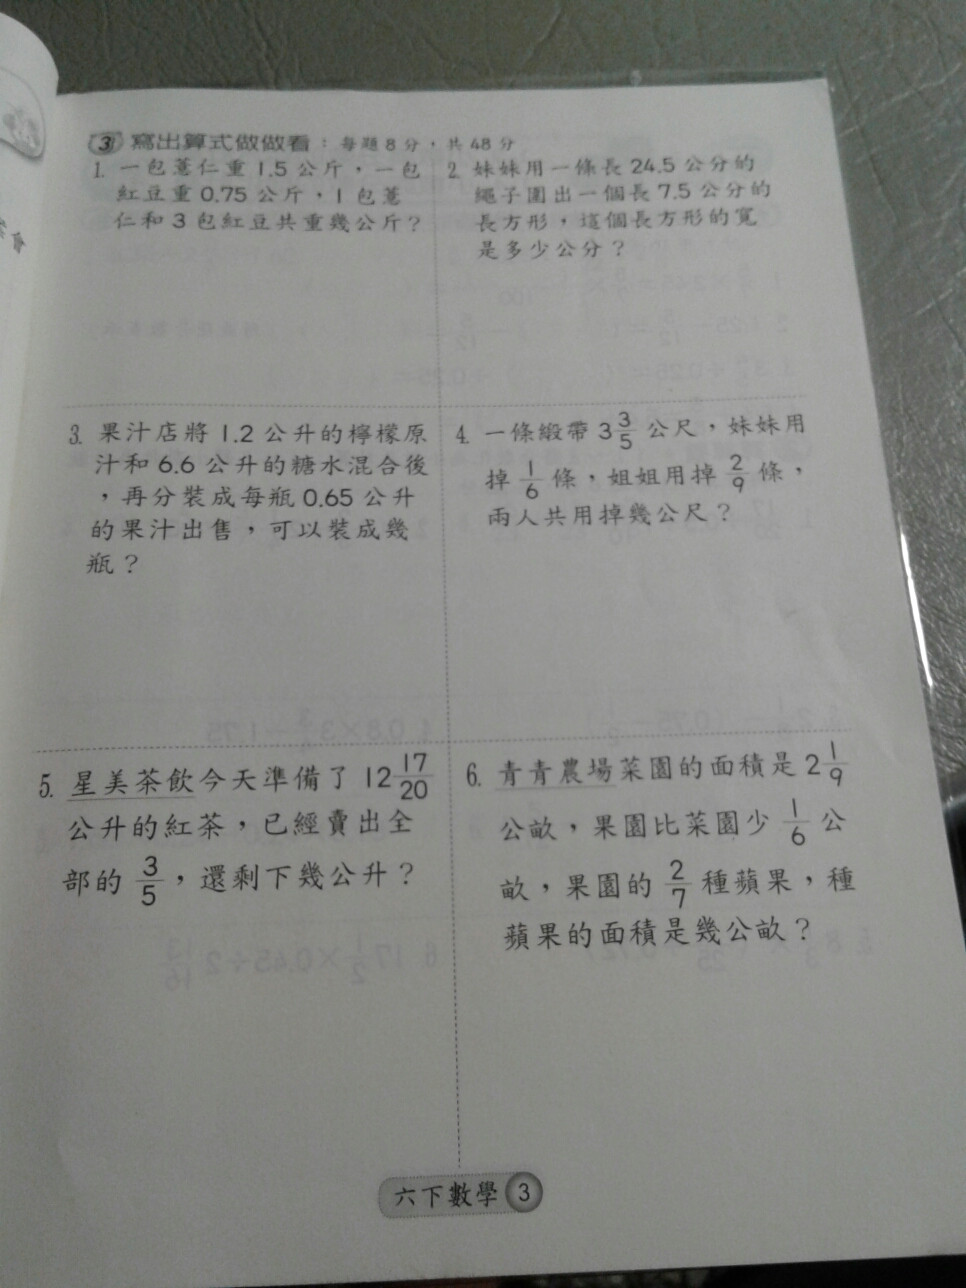 3 寫出算式做做看：每題8分，共48分
1. 一包薏仁重 1.5 公斤，一包
紅豆重 0.75 公斤，1 包薏
仁和 3 包紅豆共重幾公斤？
2. 妹妹用一條長 24.5 公分的
繩子圍出一個長 7.5 公分的
長方形，這個長方形的寬
是多少公分？
3. 果汁店將 1.2 公升的檸檬原
汁和 6.6 公升的糖水混合後
，再分裝成每瓶 0.65 公升
的果汁出售，可以裝成幾
瓶？
4. 一條緞帶 3 3/5 公尺，妹妹用
掉 1/6 條，姐姐用掉 2/9 條，
兩人共用掉幾公尺？
5. 星美茶飲今天準備了 12 17/20
公升的紅茶，已經賣出全
部的 3/5，還剩下幾公升？
6. 青青農場菜園的面積是 2 1/9
公畝，果園比菜園少 1/6 公
畝，果園的 2/7 種蘋果，種
蘋果的面積是幾公畝？
六下數學 3